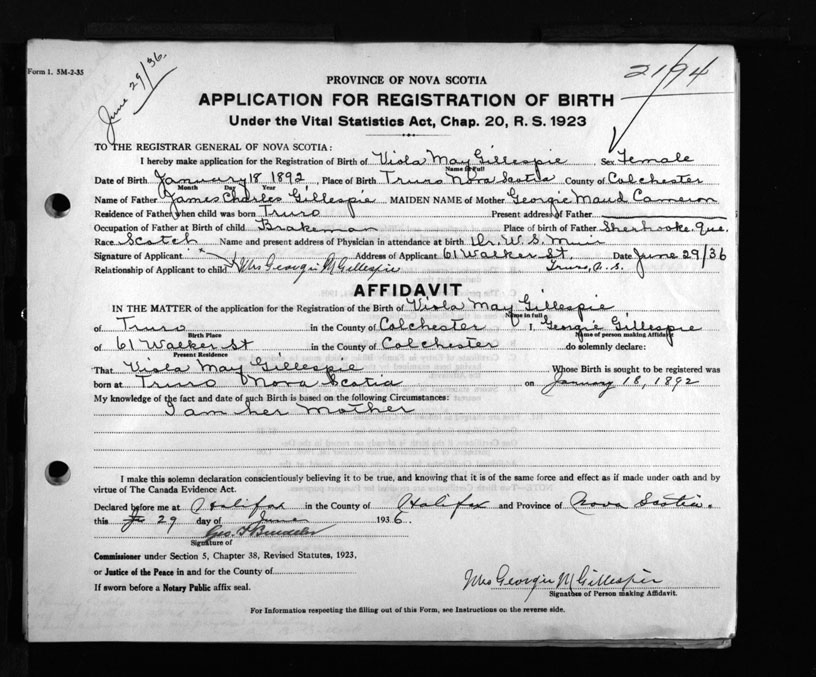 Form 1. 5M-2-35
June 29/36.
2194
PROVINCE OF NOVA SCOTIA
APPLICATION FOR REGISTRATION OF BIRTH
Under the Vital Statistics Act, Chap. 20, R. S. 1923
TO THE REGISTRAR GENERAL OF NOVA SCOTIA:
I hereby make application for the Registration of Birth of Viola May Gillespie Sex Female
Name in Full
Date of Birth January 18 1892, Place of Birth Truro Nova Scotia County of Colchester
Month Day Year
Name of Father James Charles Gillespie MAIDEN NAME of Mother Georgie Maud Cameron
Residence of Father when child was born Truro Present address of Father
Occupation of Father at Birth of child Brakeman Place of birth of Father Sherbrooke, Que.
Race Scotch Name and present address of Physician in attendance at birth Dr. W. S. Muir
Signature of Applicant x Address of Applicant 61 Walker St. Date June 29/36
Relationship of Applicant to child Mrs Georgie M Gillespie Truro, N. S.
AFFIDAVIT
IN THE MATTER of the application for the Registration of the Birth of Viola May Gillespie
Name in full
of Truro in the County of Colchester I, Georgie Gillespie
Birth Place Name of person making Affidavit
of 61 Walker St in the County of Colchester do solemnly declare:
Present Residence
That Viola May Gillespie Whose Birth is sought to be registered was
born at Truro Nova Scotia on January 18, 1892
My knowledge of the fact and date of such Birth is based on the following Circumstances:
I am her mother
I make this solemn declaration conscientiously believing it to be true, and knowing that it is of the same force and effect as if made under oath and by
virtue of The Canada Evidence Act.
Declared before me at Halifax in the County of Halifax and Province of Nova Scotia.
this 29 day of June 1936.
Geo.
Signature of
Commissioner under Section 5, Chapter 38, Revised Statutes, 1923,
or Justice of the Peace in and for the County of
If sworn before a Notary Public affix seal.
Mrs Georgie M Gillespie
Signature of Person making Affidavit.
For Information respecting the filling out of this Form, see Instructions on the reverse side.